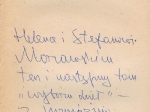 Helenie i Stefanowi
Morawskim
ten i następny tom
„wyboru dzieł" –